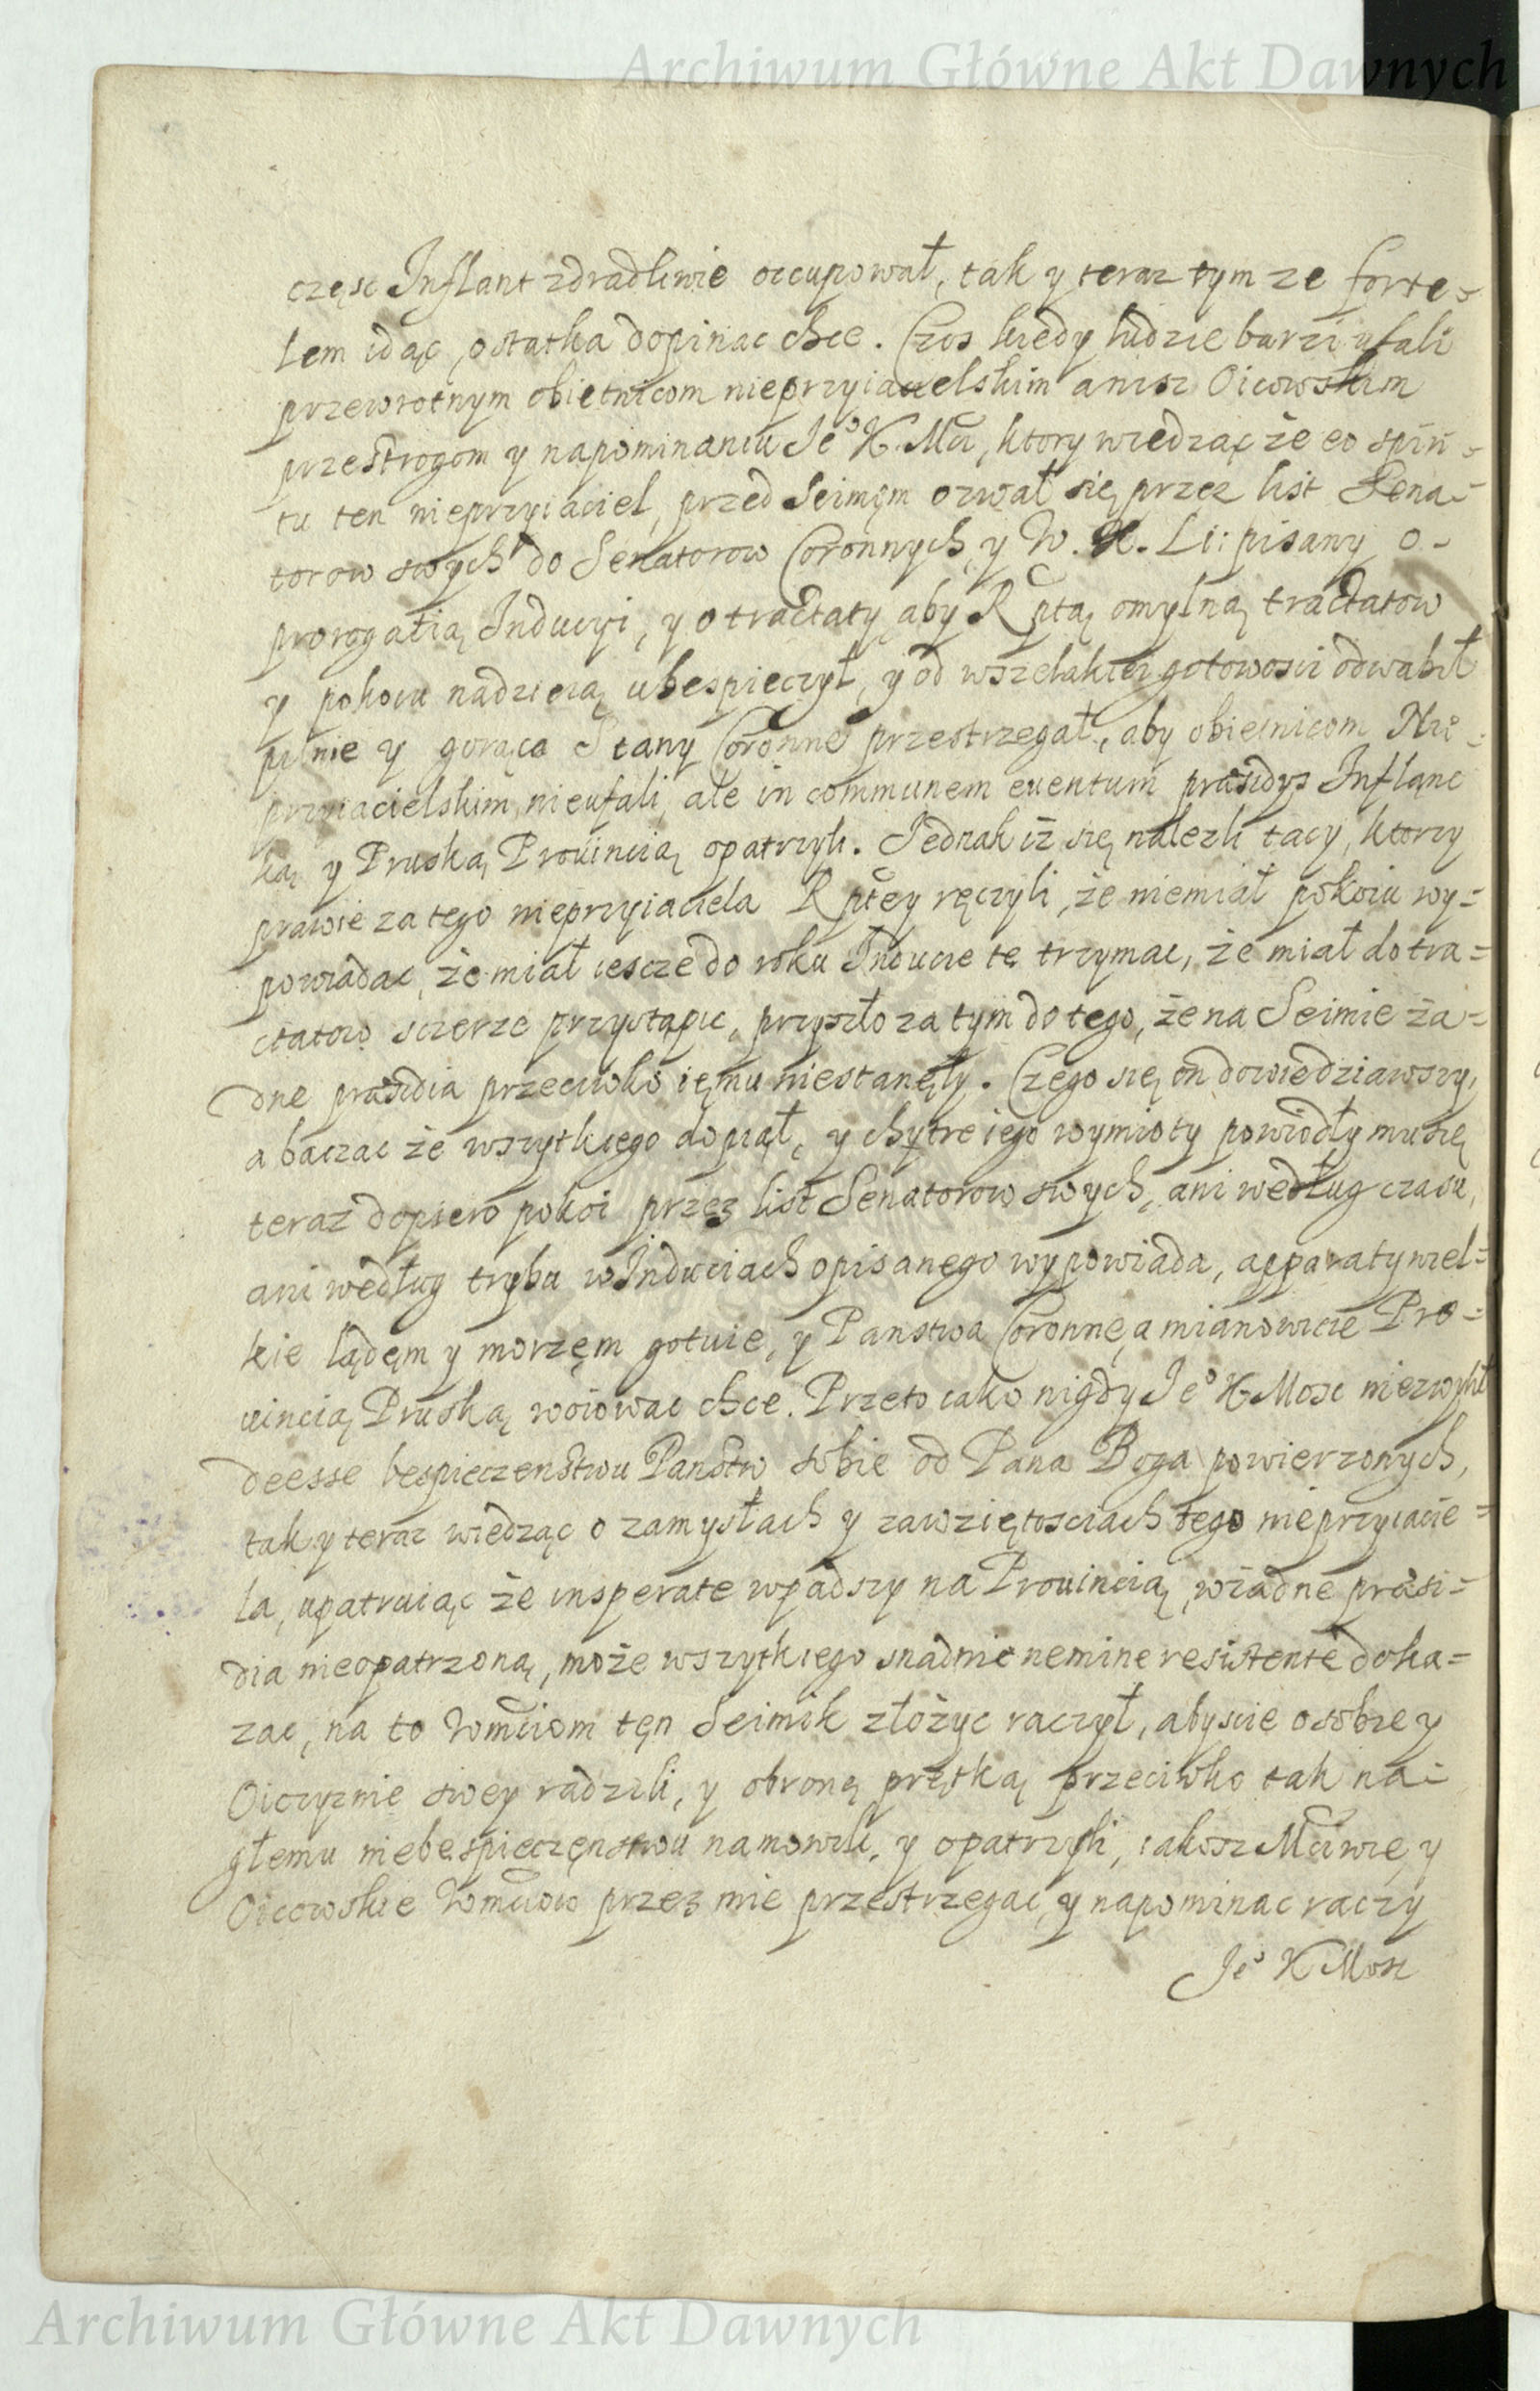 Archiwum Główne Akt Dawnych
częsc Inflant zdradliwie occupował, tak y teraz tym ze forte-
lem idąc, ostatka dopinac chce. Czos kiedy ludzie barzi ufali
przewrotnym obietnicom nieprzyiacielskim anisz Oicowskim
przestrogom y napominaniu Ieº K. Mci, ktory wiedząc że eo spiri-
tu ten nieprzyiaciel, przed Seimęm ozwał się przez list Sena-
torow swych do Senatorow Coronnych y W. X. Li: pisany o-
prorogatią Induciy, y o tractaty aby Rptą omylną tractatow
y pokoiu nadzieią ubespieczył, y od wszelakiei gotowosci odwabił
pilnie y gorąco Stany Coronne przestrzegał, aby obietnicom Nie-
przyiacielskim nieufali, ale in communem euentum præsidys Inflanc
ką y Pruską Prouincią opatrzyli. Iednak iż się nalezli tacy, ktorzy
prawie za tego nieprzyiaciela Rptey ręczyli, że niemiał pokoiu wy=
powiadac, że miał iescze do roku Inducie te trzymac, że miał do tra=
ctatow sczerze przystąpic, przyszło za tym do tego, że na Seimie ża=
dne præsidia przeciwko iemu niestanęły. Czego się on dowiedziawszy,
a bacząc że wszytkiego dopiął, y chytre iego wymioty powiodły mu się
teraz dopiero pokoi przez list Senatorow swych, ani według czasu,
ani według trybu w Induciach opisanego wypowiada, apparaty wiel=
kie lądęm y morzęm gotuie, y Panstwa Coronne, a mianowicie Pro=
uincią Pruską woiowac chce. Przeto iako nigdy Ieº K Mosc niezwykł
deesse bespieczenstwu Panstw sobie od Pana Boga powierzonych,
tak y teraz wiedząc o zamysłach y zawziętosciach tego nieprzyiacie=
la, upatruiąc że insperate wpadszy na Prouincią, w żadne præsi=
dia nieopatrzoną, może wszytkiego snadnie nemine resistente doka=
zac, na to Wmciom tęn Seimik złożyc raczył, abyscie o sobie y
Oiczyznie swey radzili, y obronę prętką przeciwko tak na-
głemu niebespieczęnstwu namowili, y opatrzyli, iakosz Mciwie y
Oicowskie Wmciow przez mie przestrzegac, y napominac raczy
Ieº K Mosc
Archiwum Główne Akt Dawnych